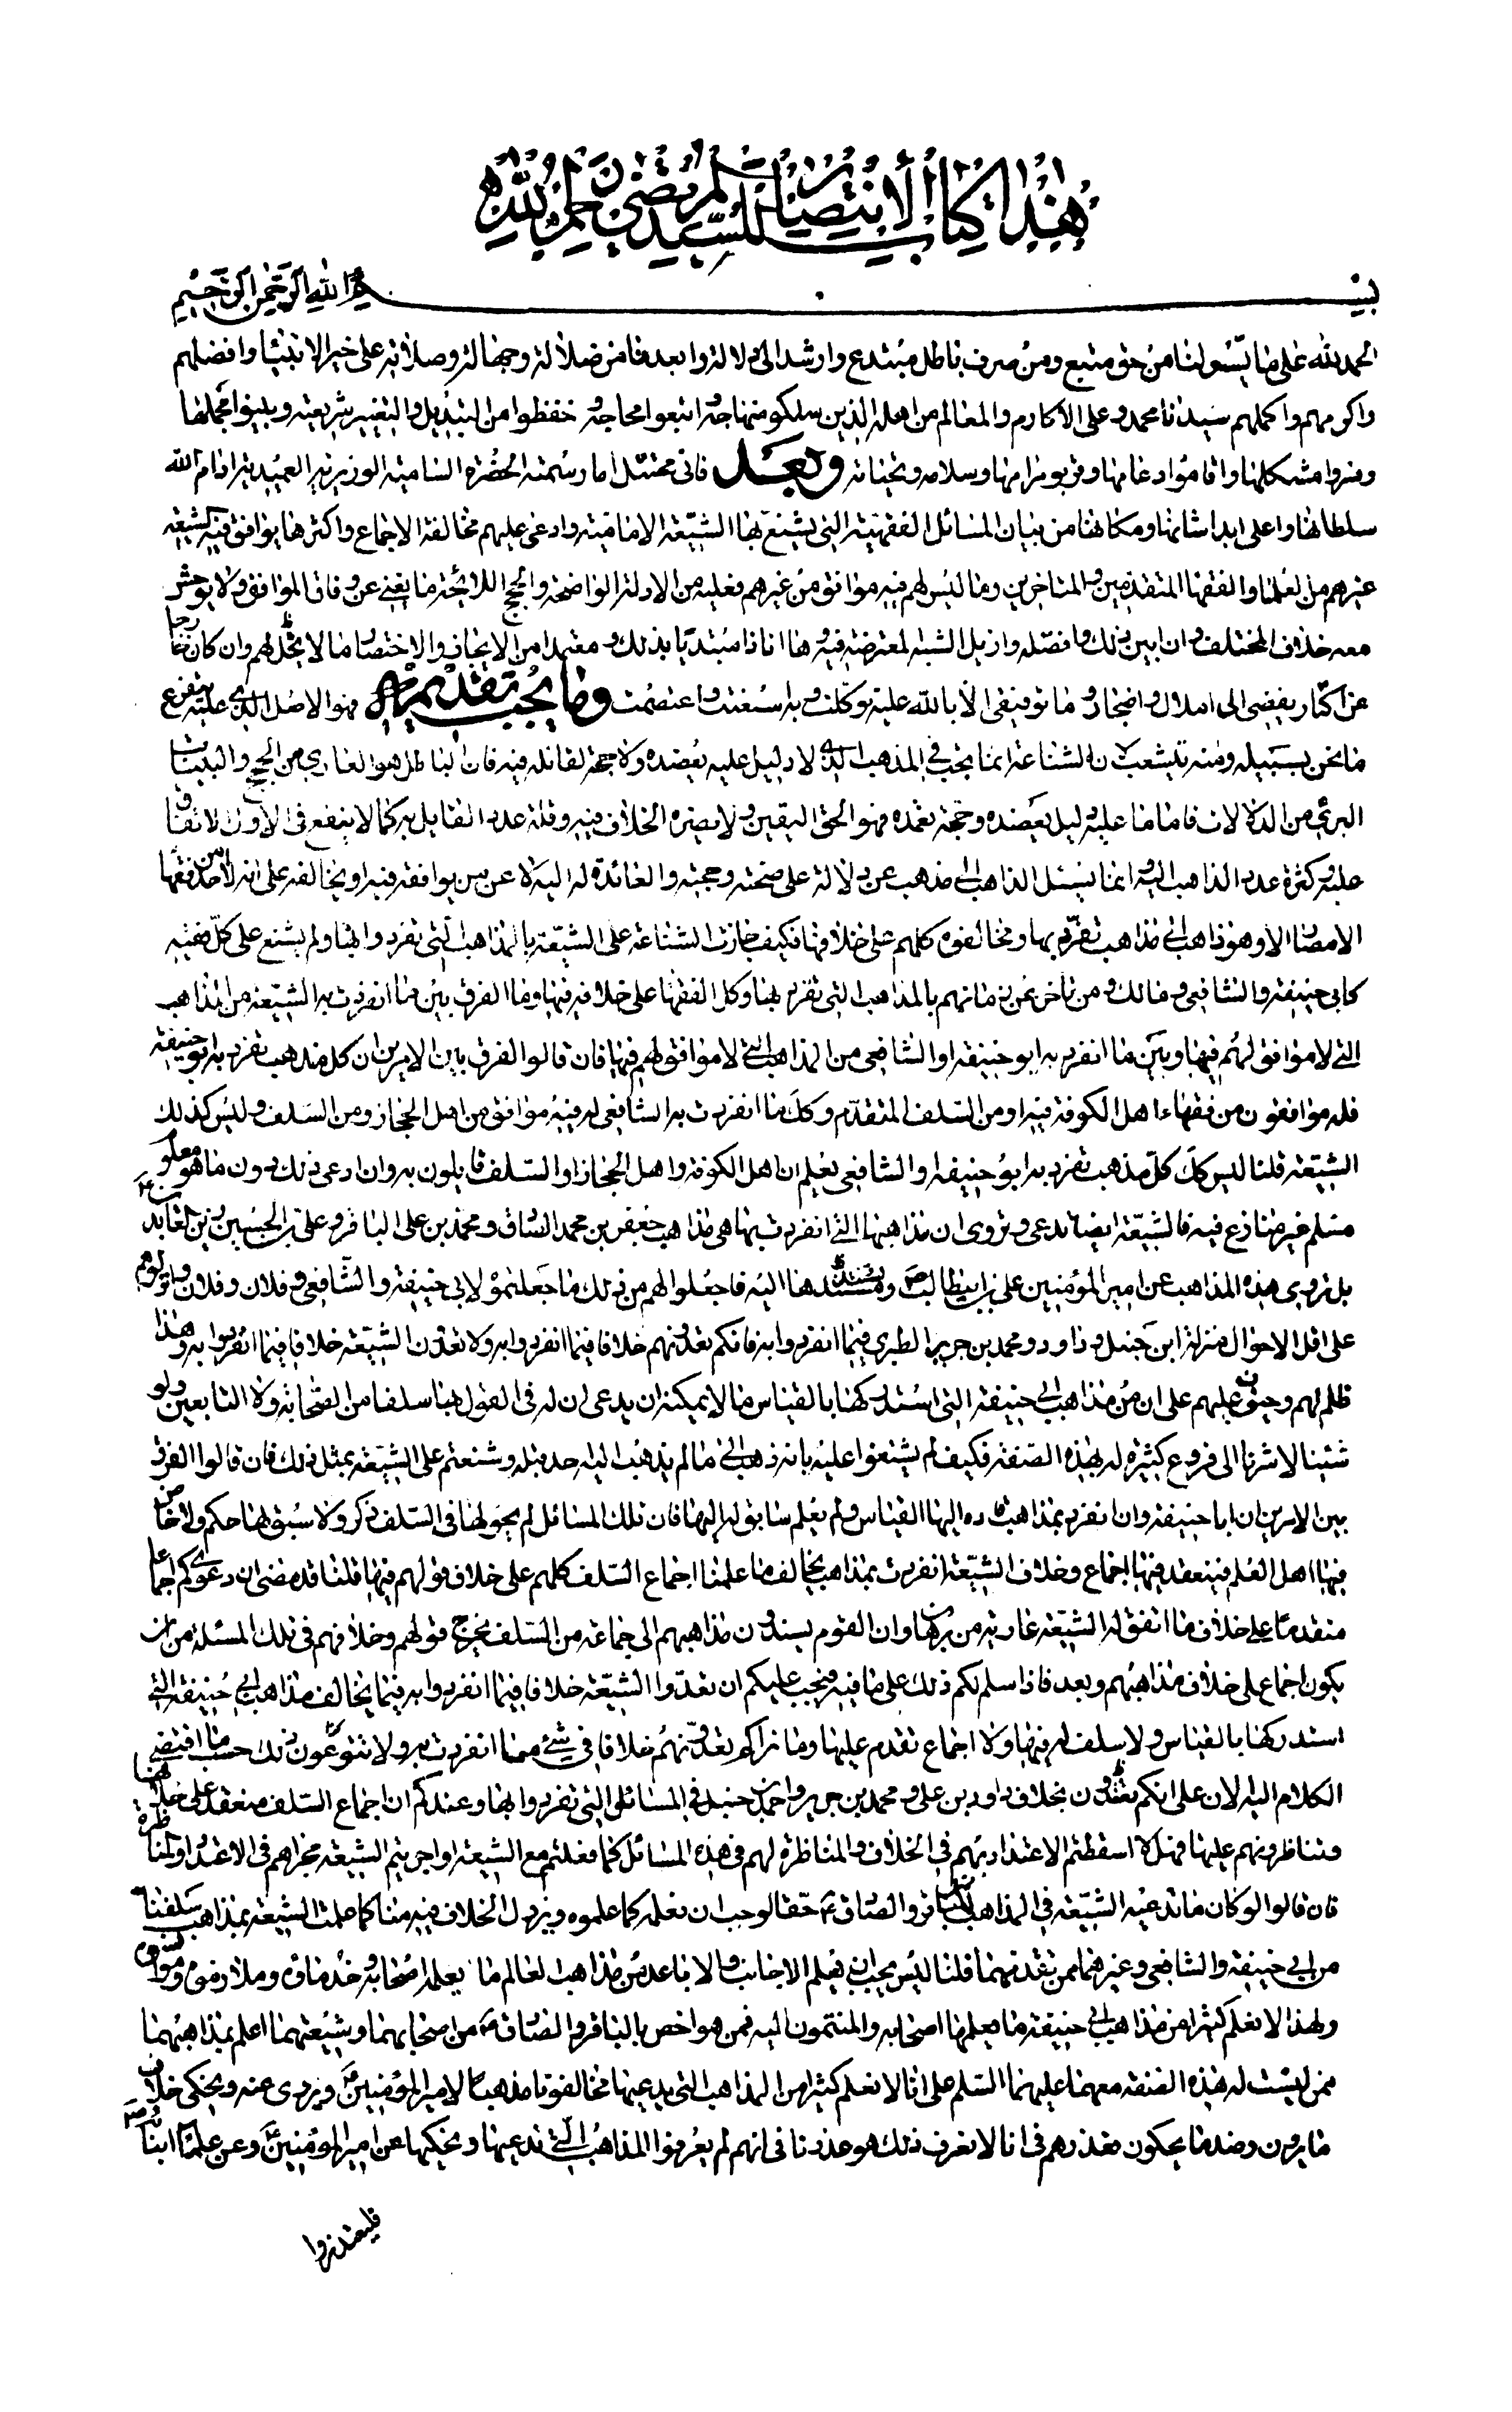 هذا كتاب الانتصار للسيد المرتضى رحمه الله
بسم الله الرحمن الرحيم
الحمد لله على ما يسر لنا من حق متبع ومن صرف باطل مبتدع وارشد الى دلالة وابعدنا من ضلالة وجهالة وصلاته على خير الانبياء وافضلهم
واكرمهم واكملهم سيدنا محمد وعلى الاكارم والمعالم من اهله الذين سلكوا منهاجه واتبعوا محاجه وحفظوا من التبديل والتغيير شريعته وبينوا مجملها
وفسروا مشكلها واقاموا دعائمها وقربوا مرامها وسلامه وتحياته وبعد فاني ممتثل ما رسمته الحضرة السامية الوزيرية العميدية ادام الله
سلطانها واعلى ابدا شانها ومكانها من بيان المسائل الفقهية التي يشنع بها الشيعة الامامية وادعى عليهم مخالفة الاجماع واكثرها يوافق فيه الشيعة
غيرهم من العلماء والفقهاء المتقدمين والمتاخرين وما ليس لهم فيه موافق من غيرهم فعليه من الادلة الواضحة والحجج اللائحة ما يغني عن وفاق الموافق ولا يوحش
معه خلاف المختلف وان ابين ذلك وافصله وازيل الشبه المعترضة فيه وها انا ذا مبتديا بذلك ومعتمدا من الايجاز والاختصار ما لا يخل لهم وان كان خارجا
عن اكثار يفضي الى املال واضجار وما توفيقي الا بالله عليه توكلت وبه استعنت واعتصمت ومما يجب تقديمه فهو الاصل الذي عليه يتفرع
ما نحن بسبيله ومنه يتشعب لان الشناعة انما تجب في المذهب الذي لا دليل عليه يعضده ولا حجة لقائله فيه فان الباطل هو العاري من الحجج والبينات
البري من الدلالات فاما ما عليه دليل يعضده وحجة تعمده فهو الحق اليقين ولا يضره الخلاف فيه وقلة عدد القايل به كما لا ينفع في الاول الاتفاق
عليه وكثرة عدد الذاهب اليه وانما نسئل الذاهب الى مذهب عن دلالة على صحته وحجته والقائدة له اليه لا عن من يوافقه فيه او يخالفه على انه لا احد من فقهاء
الامصار الا وهو ذاهب الى مذاهب تفرد بها ومخالفوه كلهم على خلافها فكيف جازت الشناعة على الشيعة بالمذاهب التي تفردوا بها ولم يشنع على كل فقيه
كابي حنيفة والشافعي ومالك ومن تاخر عن زمانهم بالمذاهب التي تفرد بها وكل الفقهاء على خلافه فيها وما الفرق بين ما انفردت به الشيعة من المذاهب
التي لا موافق لهم فيها وبين ما انفرد به ابو حنيفة او الشافعي من المذاهب التي لا موافق لهم فيها فان قالوا الفرق بين الامرين ان كل مذهب تفرد به ابو حنيفة
فله موافقون من فقهاء اهل الكوفة فيه او من السلف المتقدم وكل ما انفردت به الشافعي له فيه موافق من اهل الحجاز ومن السلف وليس كذلك
الشيعة قلنا ليس كل كل مذهب تفرد به ابو حنيفة او الشافعي يعلم ان اهل الكوفة واهل الحجاز او السلف قايلون به وان ادعى ذلك بدون ما هو معلوم
مسلم غير منازع فيه فالشيعة ايضا تدعي وتروي ان مذاهبها التي انفردت بها هي مذاهب جعفر بن محمد الصادق ومحمد بن علي الباقر وعلي بن الحسين زين العابدين
بل تروي هذه المذاهب عن امير المؤمنين علي بن ابيطالب وتسندها اليه فاجعلوا لهم من ذلك ما جعلتموه لابي حنيفة والشافعي وفلان وفلان
على اقل الاحوال منزلة ابن حنبل وداود ومحمد بن جرير الطبري فيما انفردوا به فانكم تعدونهم خلافا فيما انفردوا به ولا تعدون الشيعة خلافا فيما انفردوا به وهذا
ظلم لهم وحيف عليهم على ان من مذاهب ابي حنيفة التي استدركها بالقياس ما لا يمكنه ان يدعي ان له في القول بها سلفا من الصحابة ولا التابعين ولو
شئنا لاشرنا الى فروع كثيرة له بهذه الصفة فكيف لم يشنعوا عليه بانه ذهب الى ما لم يذهب اليه احد قبله وشنعتم على الشيعة بمثل ذلك فان قالوا الفرق
بين الامرين ان ابا حنيفة وان انفرد بمذاهب اليها القياس ولم يعلم سابق له اليها فان تلك المسائل لم يجر لها في السلف ذكر ولا سبق لها حكم ولا خاض
فيها اهل العلم فينعقد فيها اجماع وخلاف الشيعة انفردت بمذاهب يخالف ما علمنا اجماع السلف كلهم على خلاف قولهم فيها قلنا قد مضى ان دعويكم اجماعا
متقدما على خلاف ما اتفق له الشيعة عارية من برهان وان القوم يسندون مذاهبهم الى جماعة من السلف يخرج قولهم وخلافهم في تلك المسئلة من ان
يكون اجماع على خلاف مذاهبهم وبعد فاذا سلم لكم ذلك على ما فيه فيجب عليكم ان تعدوا الشيعة خلافا فيما انفردوا به فيما يخالف مذاهب ابي حنيفة التي
استدركها بالقياس ولا سلف له فيها ولا اجماع تقدم عليها وما نراكم تعدونهم خلافا في شئ مما انفردت به ولا تتنوعون ذلك حسب ما اقتضى
الكلام اليه الان على انكم تعتدون بخلاف داود بن علي ومحمد بن جرير واحمد بن حنبل في المسائل التي تفردوا بها وعندكم ان اجماع السلف منعقد على خلافها
وتناظرونهم عليها فهلا اسقطتم الاعتداد بهم في الخلاف والمناظرة لهم في هذه المسائل كما فعلتم مع الشيعة او اجريتم الشيعة مجراهم في الاعتداد والمناظرة
فان قالوا لو كان ما تدعيه الشيعة في المذاهب الباقر والصادق حقا لوجب ان نعلمه كما علموه ويزول الخلاف فيه منا كما علمت الشيعة بمذاهب سلفنا
من ابي حنيفة والشافعي وغيرهما ممن تقدمهما قلنا ليس يجب ان يعلم الاجانب والاباعد من مذاهب العالم ما يعلمه اصحابه وخدماؤه وملازموه
ولهذا لا نعلم كثيرا من مذاهب ابي حنيفة ما يعلمها اصحابه والمنتمون اليه فمن هو اخص بالباقر والصادق من اصحابهما وشيعتهما اعلم بمذاهبهما
ممن ليست له هذه الصفة معهما عليهما السلم على انا لا نعلم كثيرا من المذاهب التي يدعيها مخالفونا مذهبا لامير المؤمنين ويروى عنه ويحكي خلاف
ما يروون وضد ما يحكون فعذرهم في انا لا نعرف ذلك هو عذرنا في انهم لم يعرفوا المذاهب التي ندعيها ونحكيها عن امير المؤمنين وعن علماء ابنائه
فليعتذروا